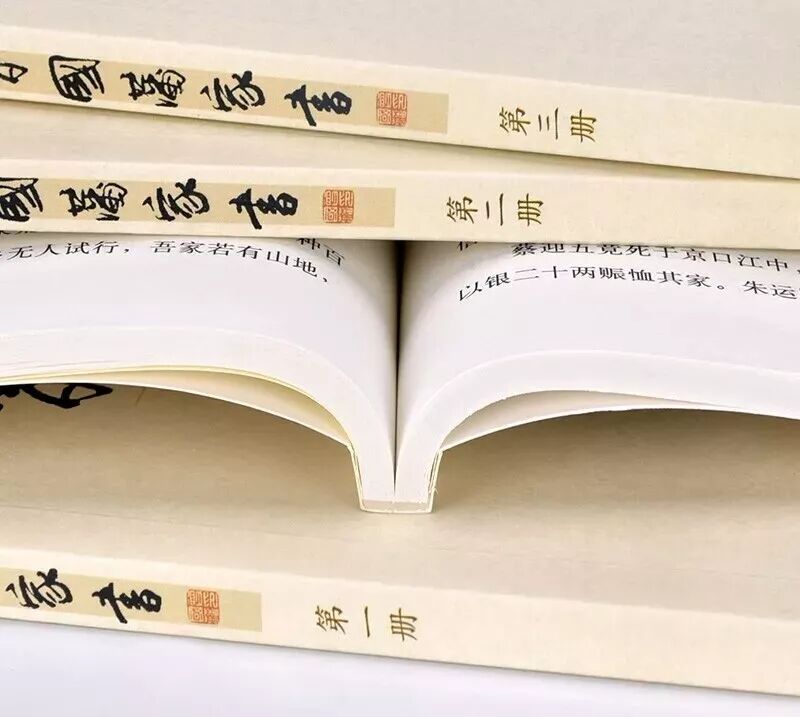 國藩家書
第三册
國藩家書
第二册
无人试行，吾家若有山地，
种百
蔡迎五竟死于京口江中，
以银二十两赈恤其家。朱运
家書
第一册